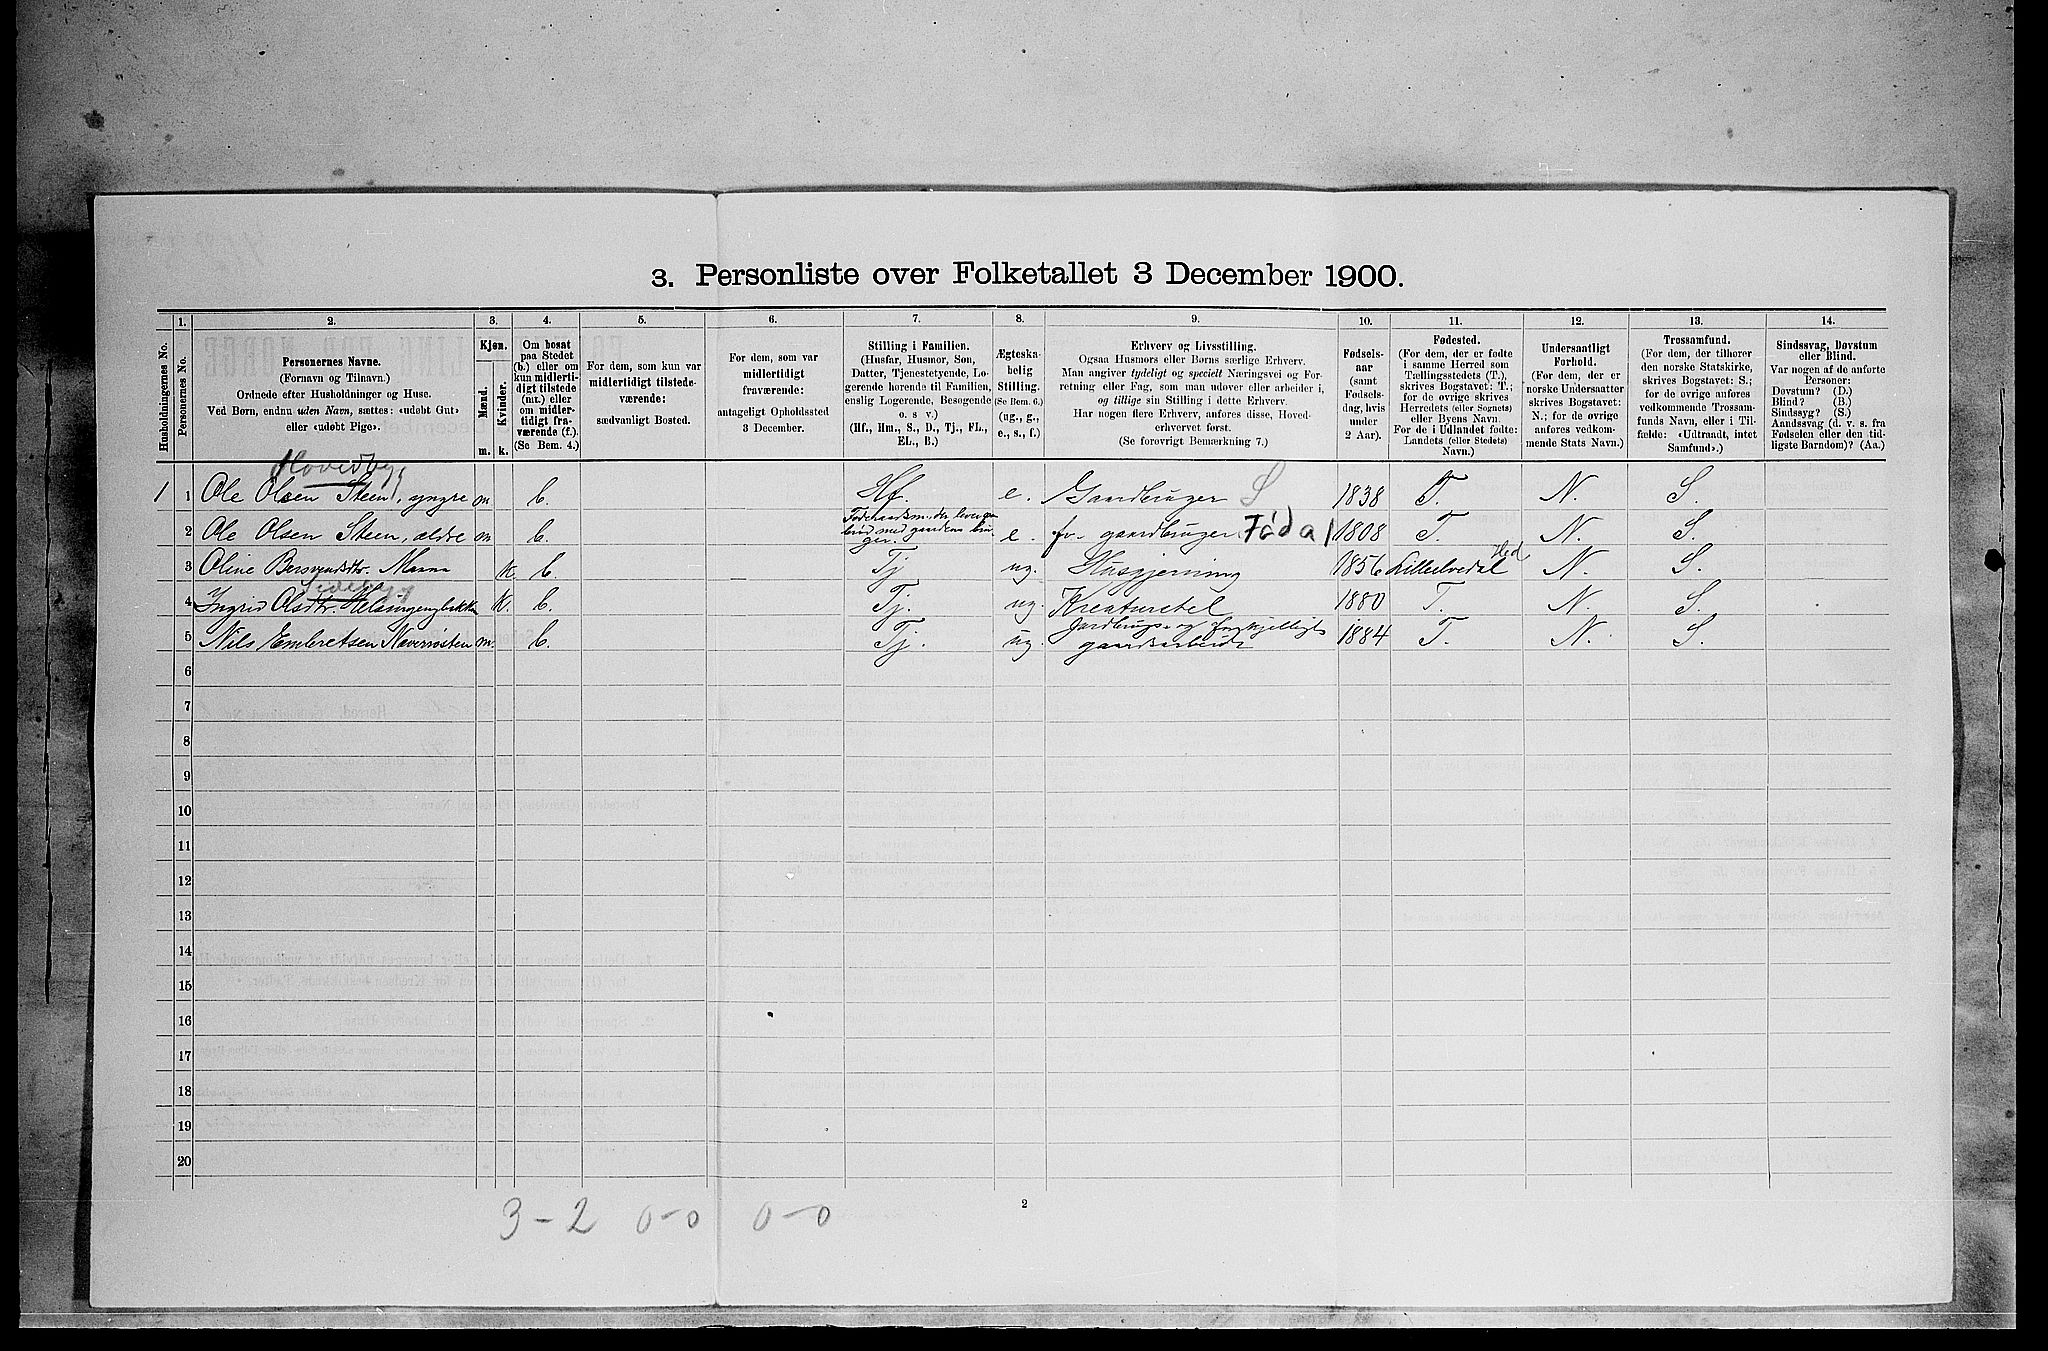 3. Personliste over Folketallet 3 December 1900.
1. 2. 3. 4. 5. 6. 7. 8. 9. 10. 11. 12. 13. 14.
Husholdningernes No.
Personernes No.
Personernes Navne.
(Fornavn og Tilnavn.)
Ordnede efter Husholdninger og Huse.
Ved Børn, endnu uden Navn, sættes: «udøbt Gut»
eller «udøbt Pige».
Kjøn.
Mænd.
Kvinder.
m. k.
Om bosat
paa Stedet
(b.) eller om
kun midlerti-
digt tilstede
(mt.) eller
om midler-
tidigt fra-
værende (f.).
(Se Bem. 4.)
For dem, som kun var
midlertidigt tilstede-
værende:
sædvanligt Bosted.
For dem, som var
midlertidigt
fraværende:
antageligt Opholdssted
3 December.
Stilling i Familien.
(Husfar, Husmor, Søn,
Datter, Tjenestetyende, Lo-
gerende hørende til Familien,
enslig Logerende, Besøgende
o. s v.)
(Hf., Hm., S., D., Tj., FL.,
EL., B.)
Ægteska-
belig
Stilling.
(Se Bem. 6.)
(ug., g.,
e., s., f.)
Erhverv og Livsstilling.
Ogsaa Husmors eller Børns særlige Erhverv.
Man angiver tydeligt og specielt Næringsvei og For-
retning eller Fag, som man udøver eller arbeider i,
og tillige sin Stilling i dette Erhverv.
Har nogen flere Erhverv, anføres disse, Hoved-
erhvervet først.
(Se forøvrigt Bemærkning 7.)
Fødsels-
aar
(samt
Fødsels-
dag, hvis
under
2 Aar).
Fødested.
(For dem, der er fødte
i samme Herred som
Tællingsstedets (T.),
skrives Bogstavet: T.;
for de øvrige skrives
Herredets (eller Sognets)
eller Byens Navn.
For de i Udlandet fødte:
Landets (eller Stedets)
Navn.)
Undersaatligt
Forhold.
(For dem, der er
norske Undersaatter
skrives Bogstavet:
N.; for de øvrige
anføres vedkom-
mende Stats Navn.)
Trossamfund.
(For dem, der tilhører
den norske Statskirke,
skrives Bogstavet: S.;
for de øvrige anføres
vedkommende Trossam-
funds Navn, eller i Til-
fælde: «Udtraadt, intet
Samfund».)
Sindssvag, Døvstum
eller Blind.
Var nogen af de anførte
Personer:
Døvstum? (D.)
Blind? (B.)
Sindssyg? (S.)
Aandssvag (d. v. s. fra
Fødselen eller den tid-
ligste Barndom)? (Aa.)
Hovedbyg
1 1 Ole Olsen Steen, yngre m b. Hf. e. Gaardbruger S 1838 T. N. S.
2 Ole Olsen Steen, ældre m b. e. fv. gaardbruger Föda 1808 T. N. S.
3 Oline Bersvendsdtr. Moana k b. Tj ug. Husgjerning 1856 Lilleelvedal Hed N. S.
Sidebyg
4 Ingrid Olsdtr. k. b. Tj. ug. Kreaturstel 1880 T. N. S.
5 Nils Embretsen Naverrosten m. b. Tj. ug. Jordbrugs og forskjelligt 1884 T. N. S.
gaardsarbeide
6
7
8
9
10
11
12
13
14
15
16
17
18
19
20
2
3 - 2 0-0 0-0